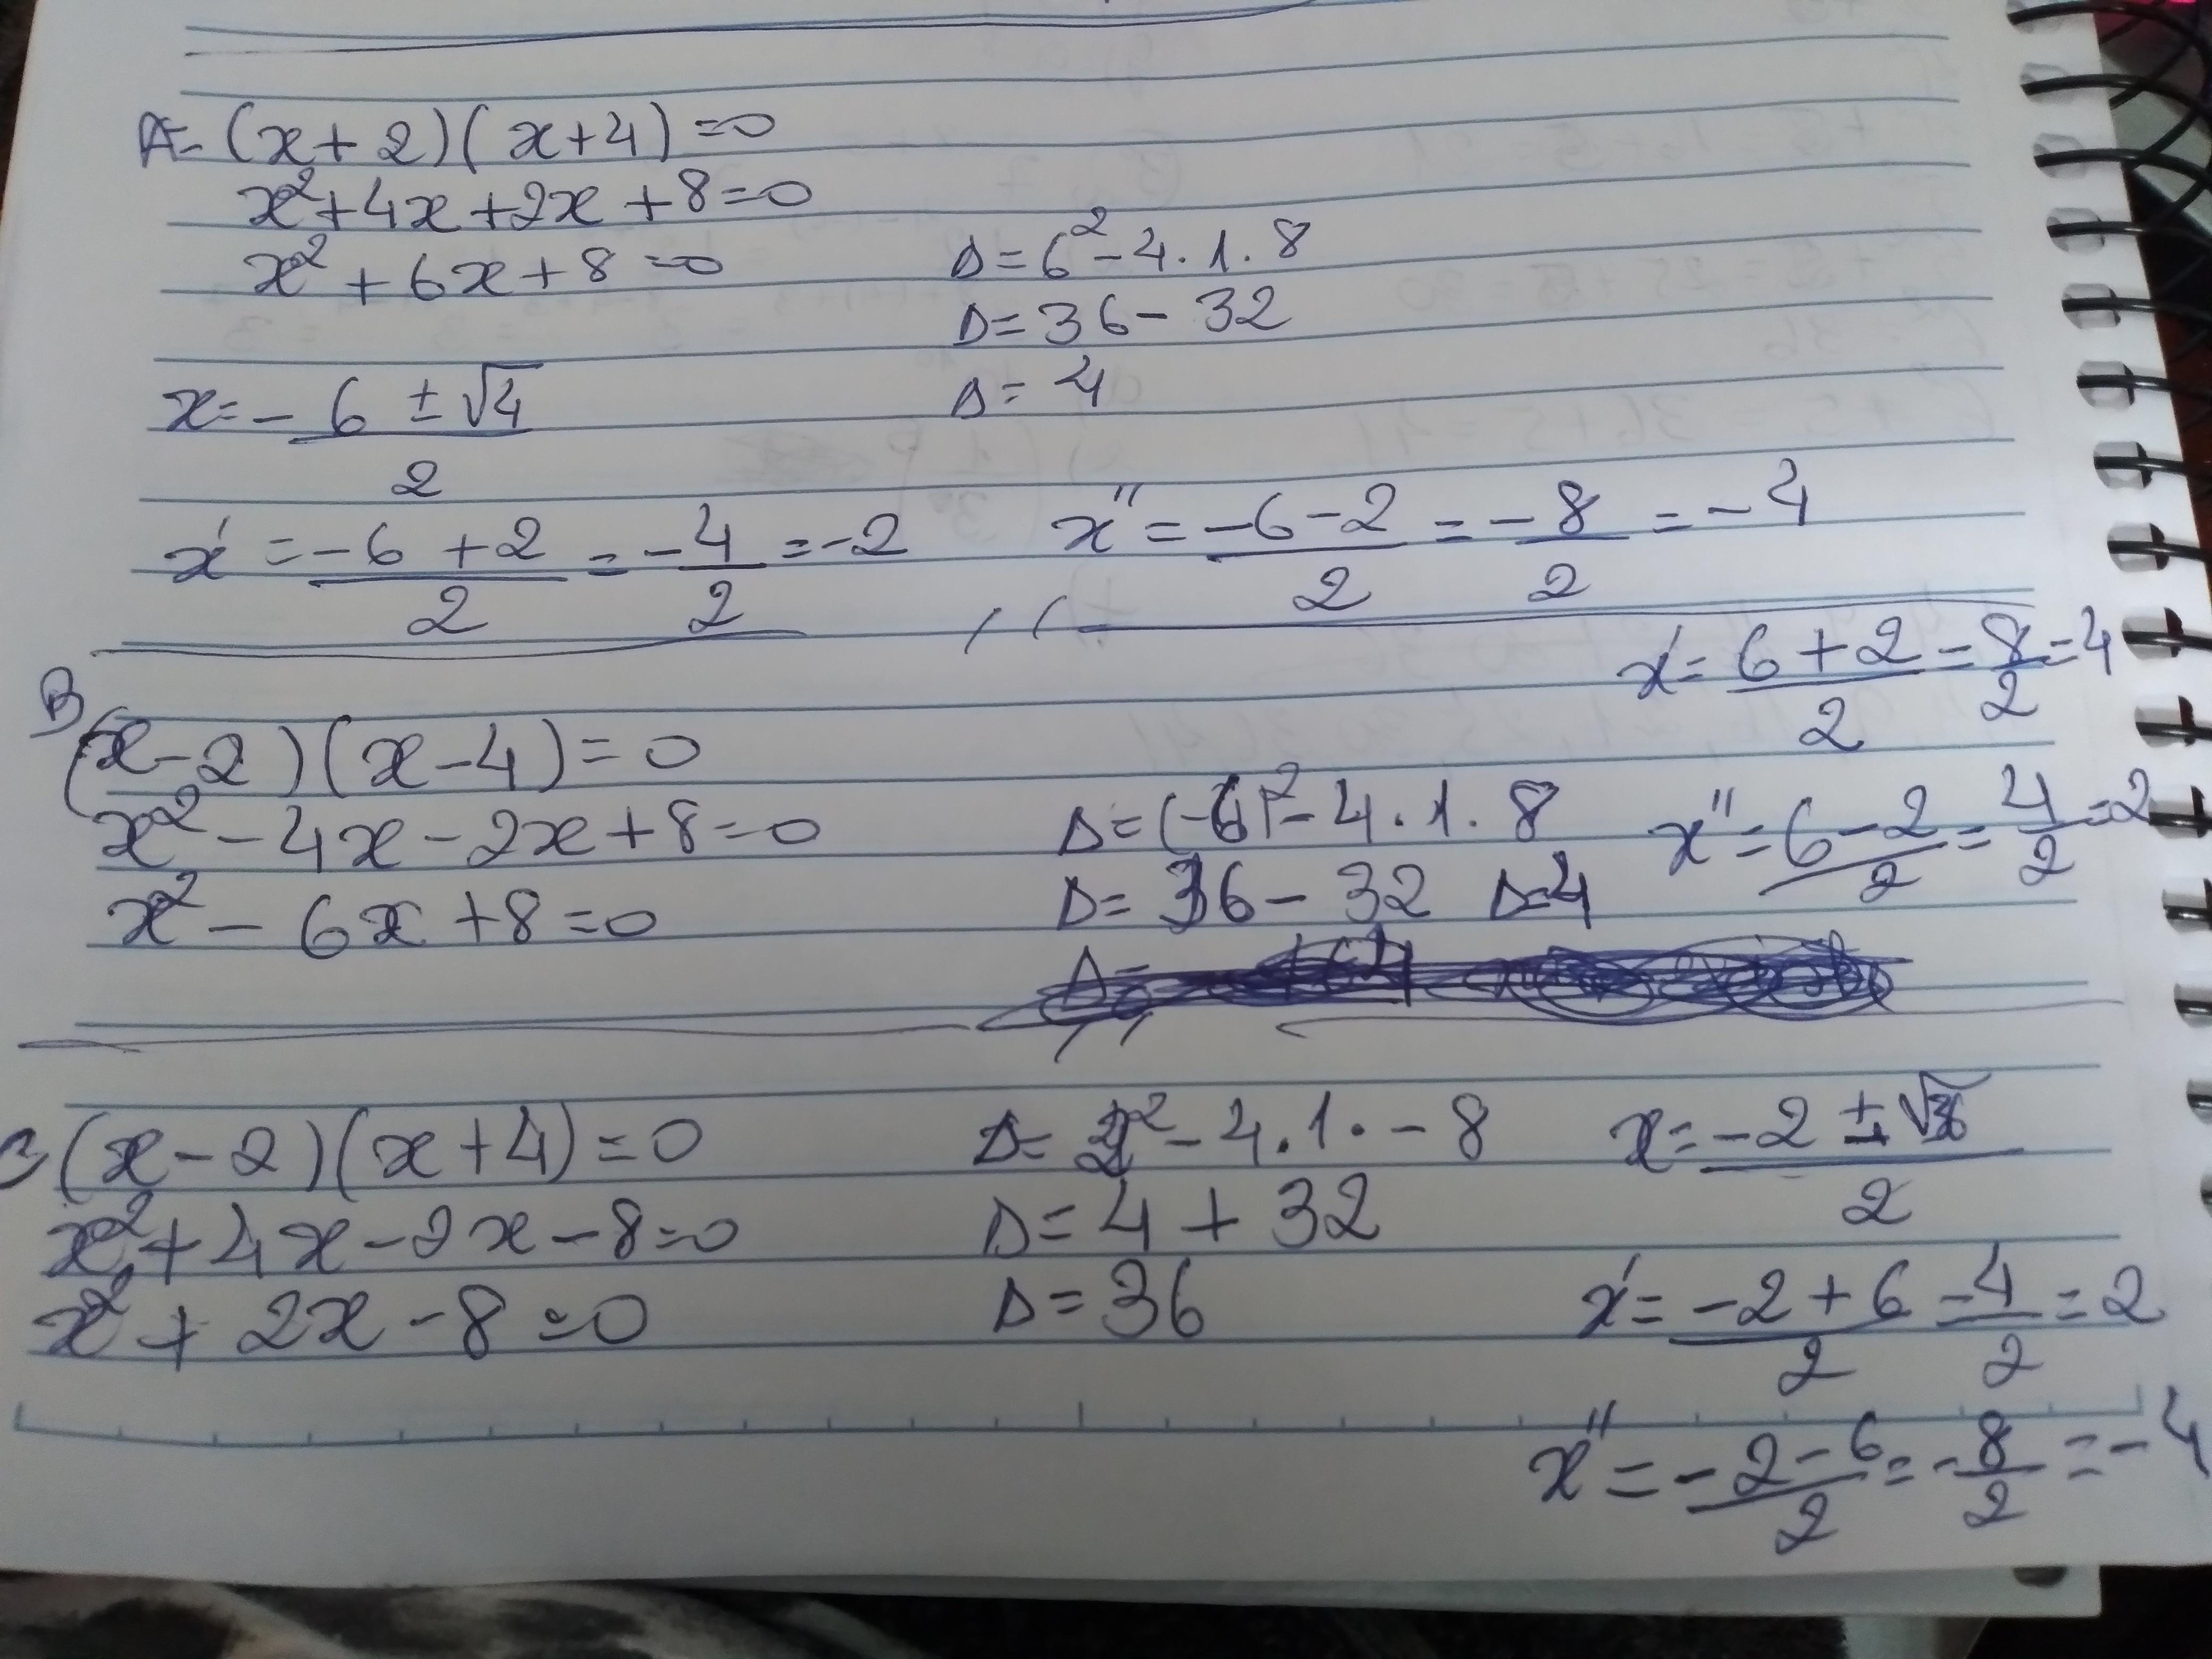 A- (x+2)(x+4)=0
x²+4x+2x+8=0
x²+6x+8=0
Δ=6²-4.1.8
Δ=36-32
Δ=4
x=-6±√4
2
x'=-6+2=-4=-2
2 2
x''=-6-2=-8=-4
2 2
B
(x-2)(x-4)=0
x²-4x-2x+8=0
x²-6x+8=0
Δ=(-6)²-4.1.8
Δ=36-32 Δ=4
Δ=
x'=6+2=8=4
2 2
x''=6-2=4=2
2 2
(x-2)(x+4)=0
x²+4x-2x-8=0
x²+2x-8=0
Δ=2²-4.1.-8
Δ=4+32
Δ=36
x=-2±√36
2
x'=-2+6=4=2
2 2
x''=-2-6=-8=-4
2 2